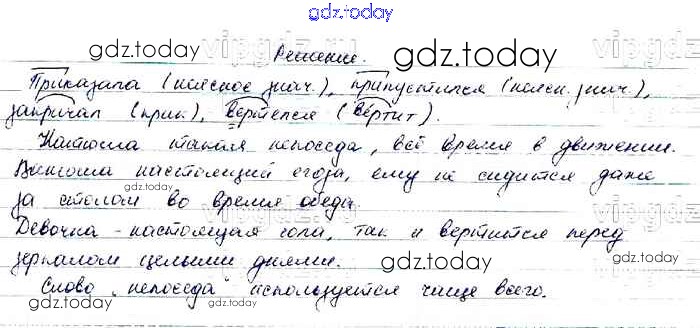 gdz.today
Решение.
gdz.today
vipgdz.ru
Приказала (неясное знач.), припустился (неясн. знач.),
закричал (крик), вертелся (вертит).
Настоша такая непоседа, всё время в движении.
настоящий егоза, ему не сидится даже
gdz.today
за столом во время обеда.
gdz.today
Девочка - настоящая юла, так и вертится перед
зеркалом целыми днями.
gdz.today
Слово "непоседа" используется чаще всего.
gdz.today
gdz.today